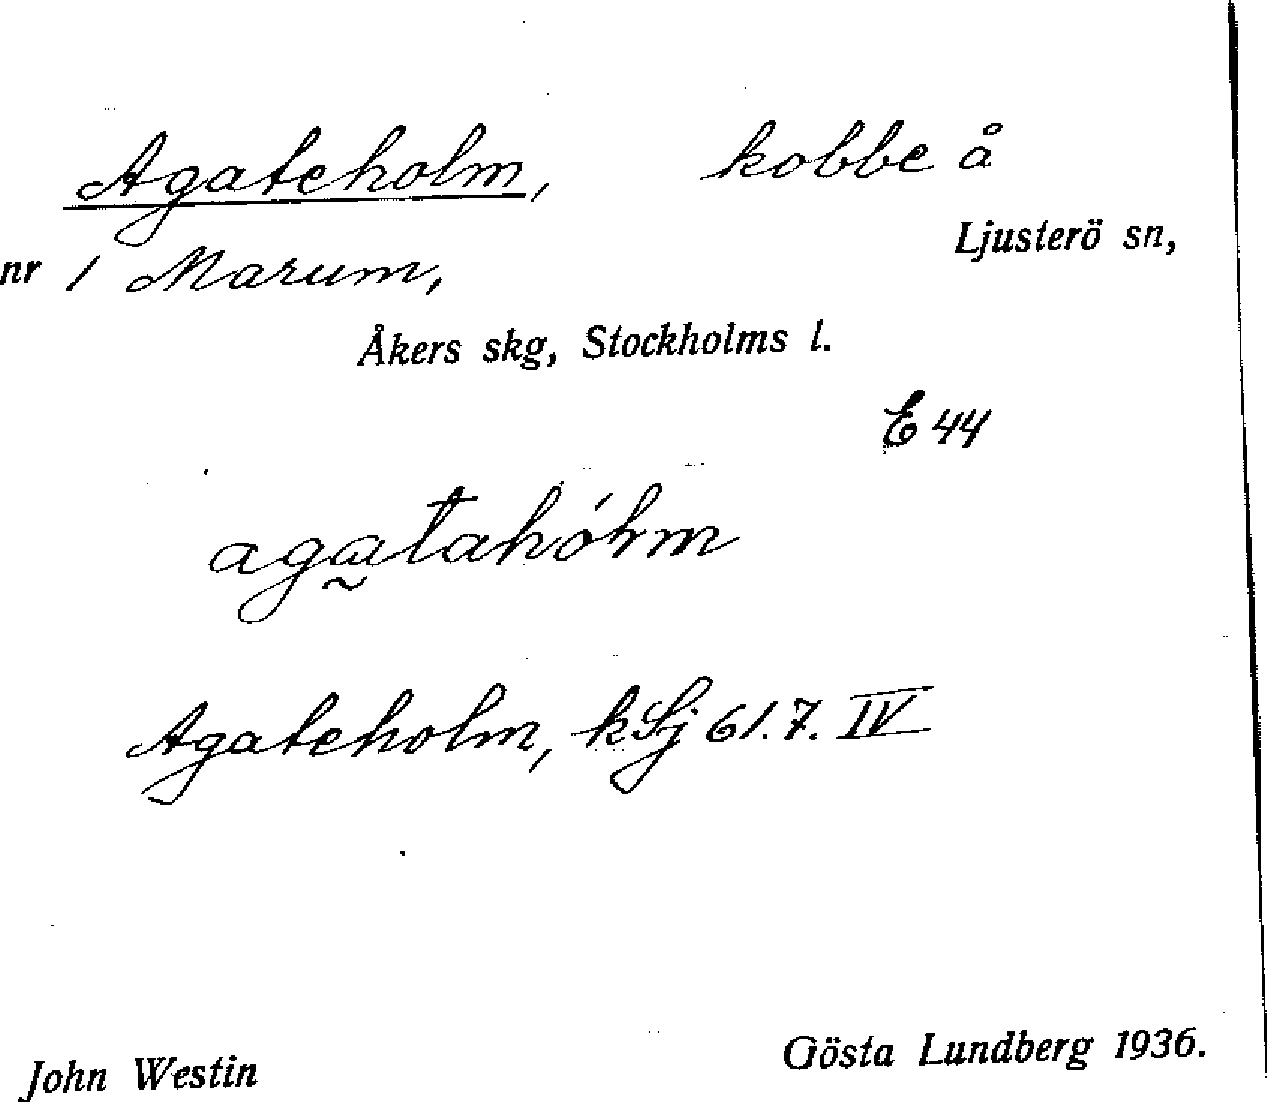 Agateholm, kobbe å
nr 1 Marum, Ljusterö sn,
Åkers skg, Stockholms l.
E 44
agatahólm
Agateholm, kSj 61.7. IV
John Westin Gösta Lundberg 1936.